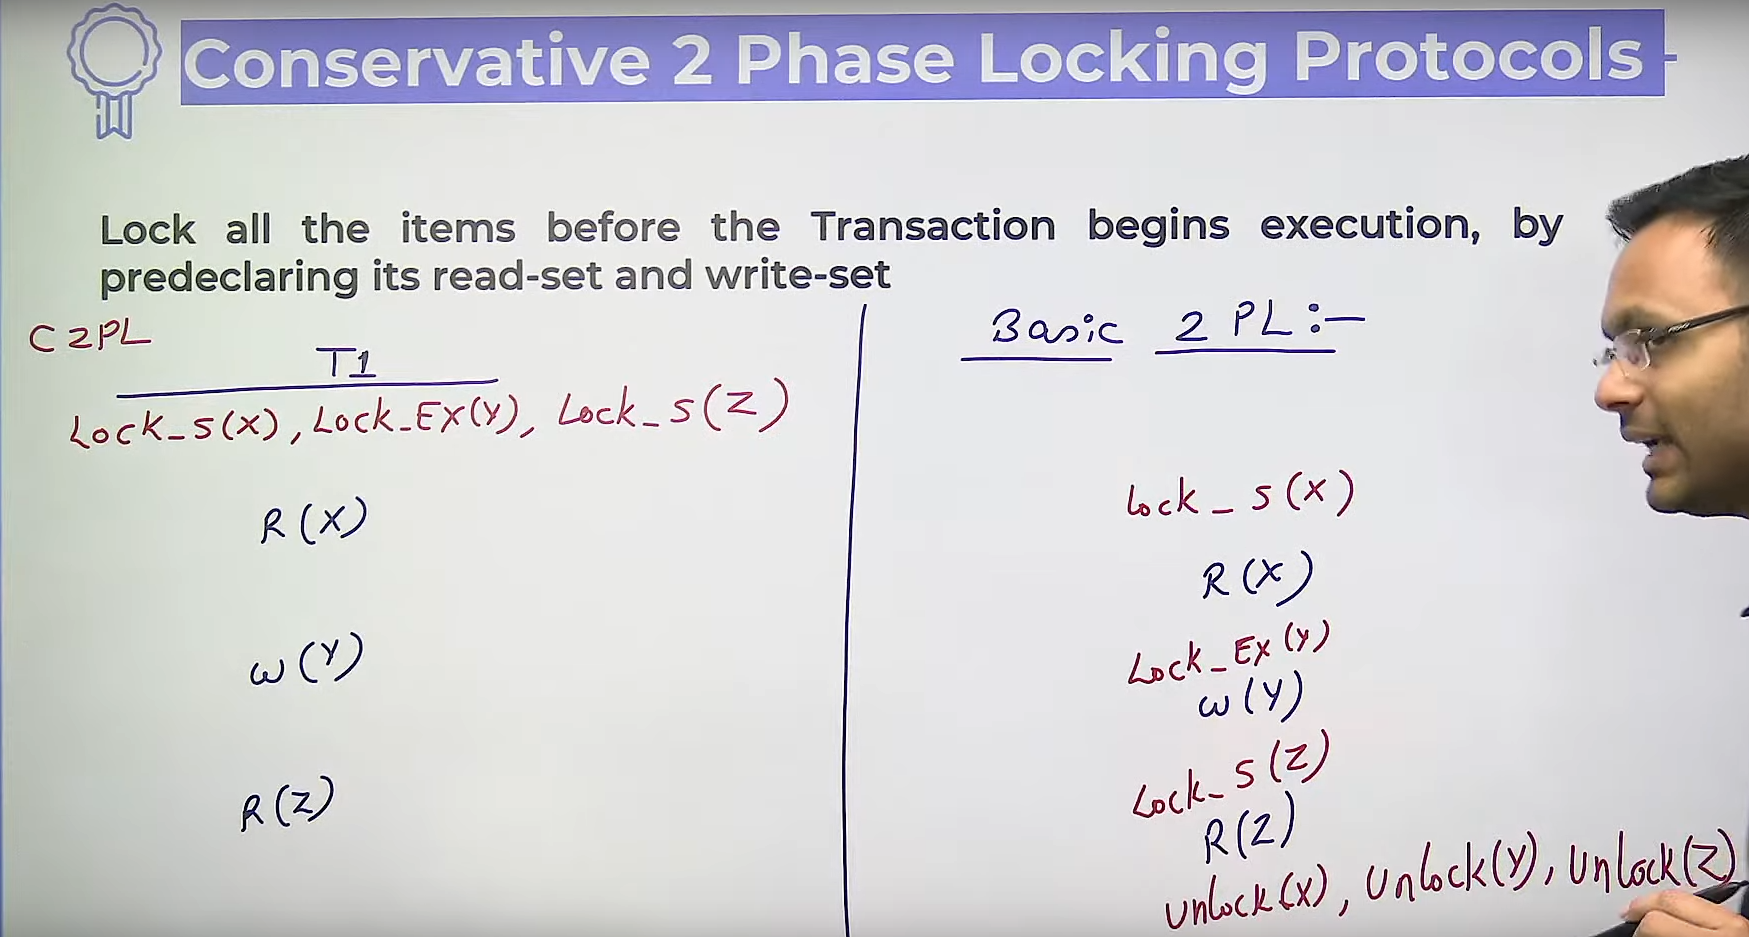 Conservative 2 Phase Locking Protocols -
Lock all the items before the Transaction begins execution, by
predeclaring its read-set and write-set
C2PL
T1
Lock_S(X), Lock_EX(Y), Lock_S(Z)
R(X)
W(Y)
R(Z)
Basic 2 PL:-
Lock_S(X)
R(X)
Lock_EX(Y)
W(Y)
Lock_S(Z)
R(Z)
Unlock(X), Unlock(Y), Unlock(Z)